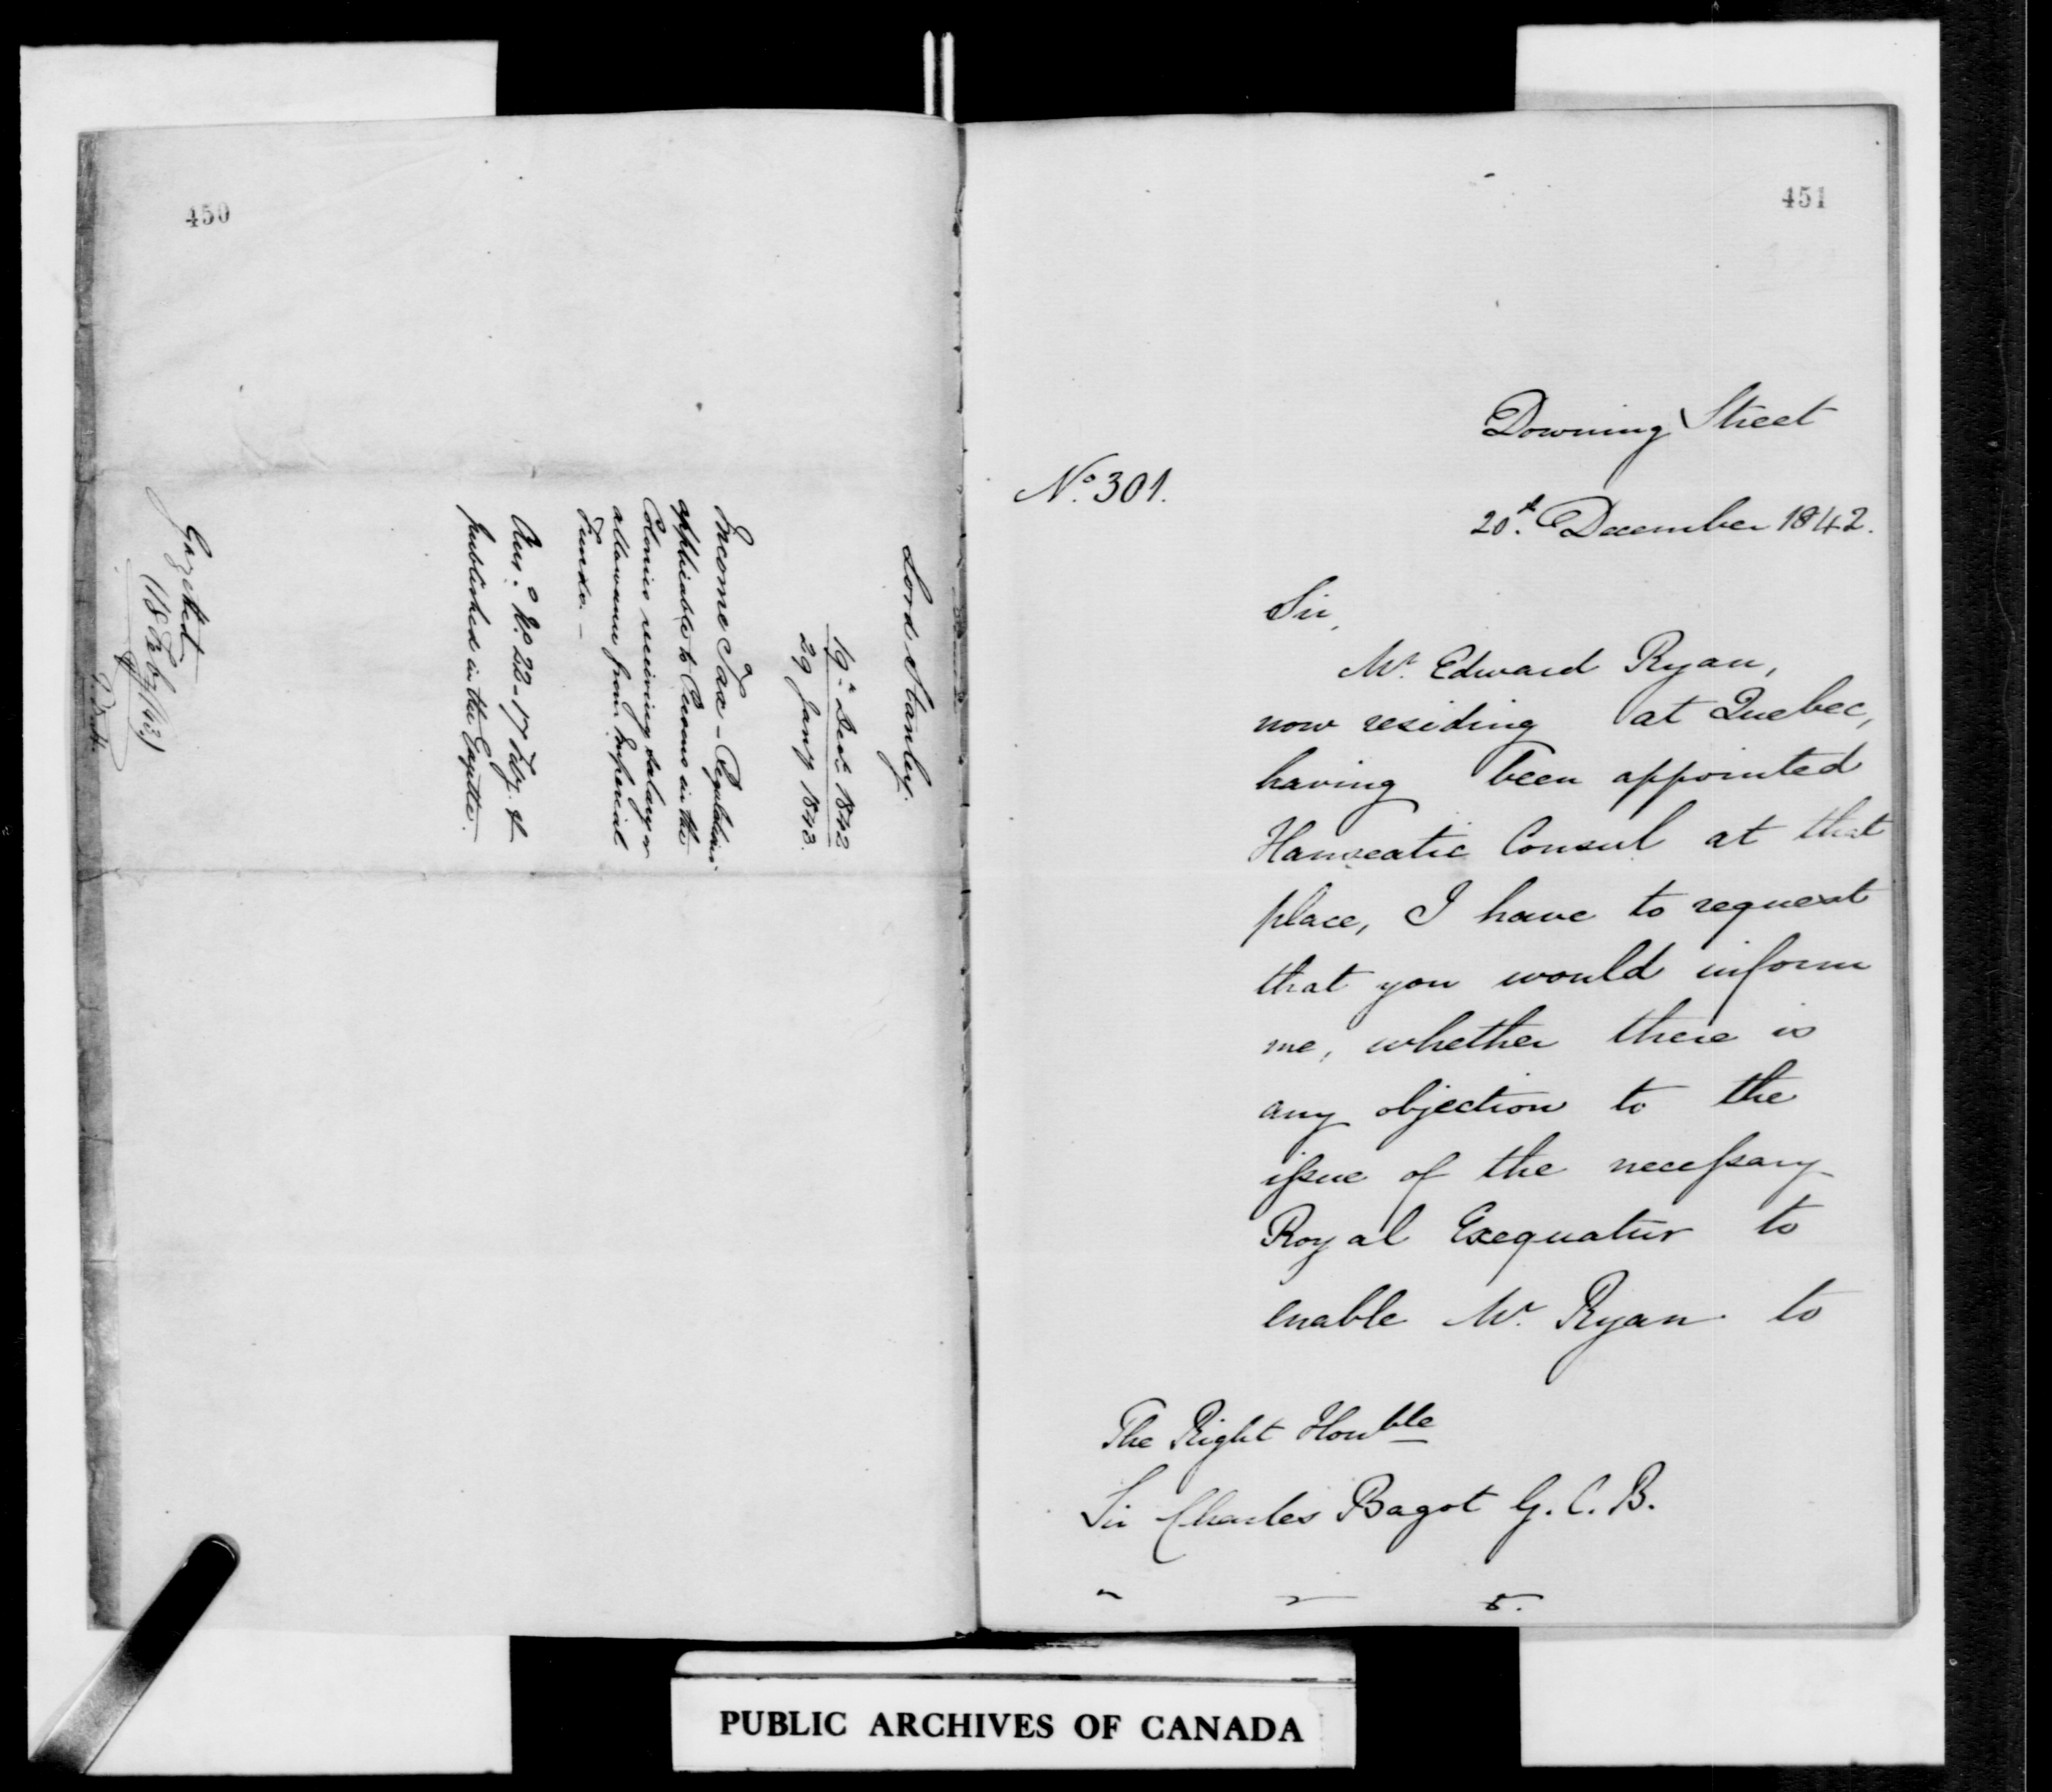 450
Lord Stanley.
19th Decr. 1842
29 Jany 1843.
Income Tax - Regulations
applicable to Persons in the
Colonies receiving salary or
allowance from Imperial
Funds. -
Ansd. No. 22 - 17 Feby. &
published in the Gazette.
Gazetted
(18 Feby/43)
451
Downing Street
No. 301.
20th. December 1842.
Sir,
Mr. Edward Ryan,
now residing at Quebec,
having been appointed
Hanseatic Consul at that
place, I have to request
that you would inform
me, whether there is
any objection to the
issue of the necessary
Royal Exequatur to
enable Mr. Ryan to
The Right Honble
Sir Charles Bagot G.C.B.
PUBLIC ARCHIVES OF CANADA